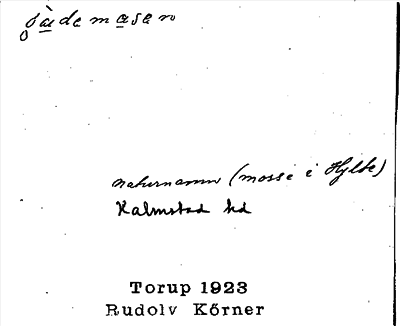 gàdemasan
naturnamn (mosse i Hylte)
Halmstad hd
Torup 1923
Rudolv Körner